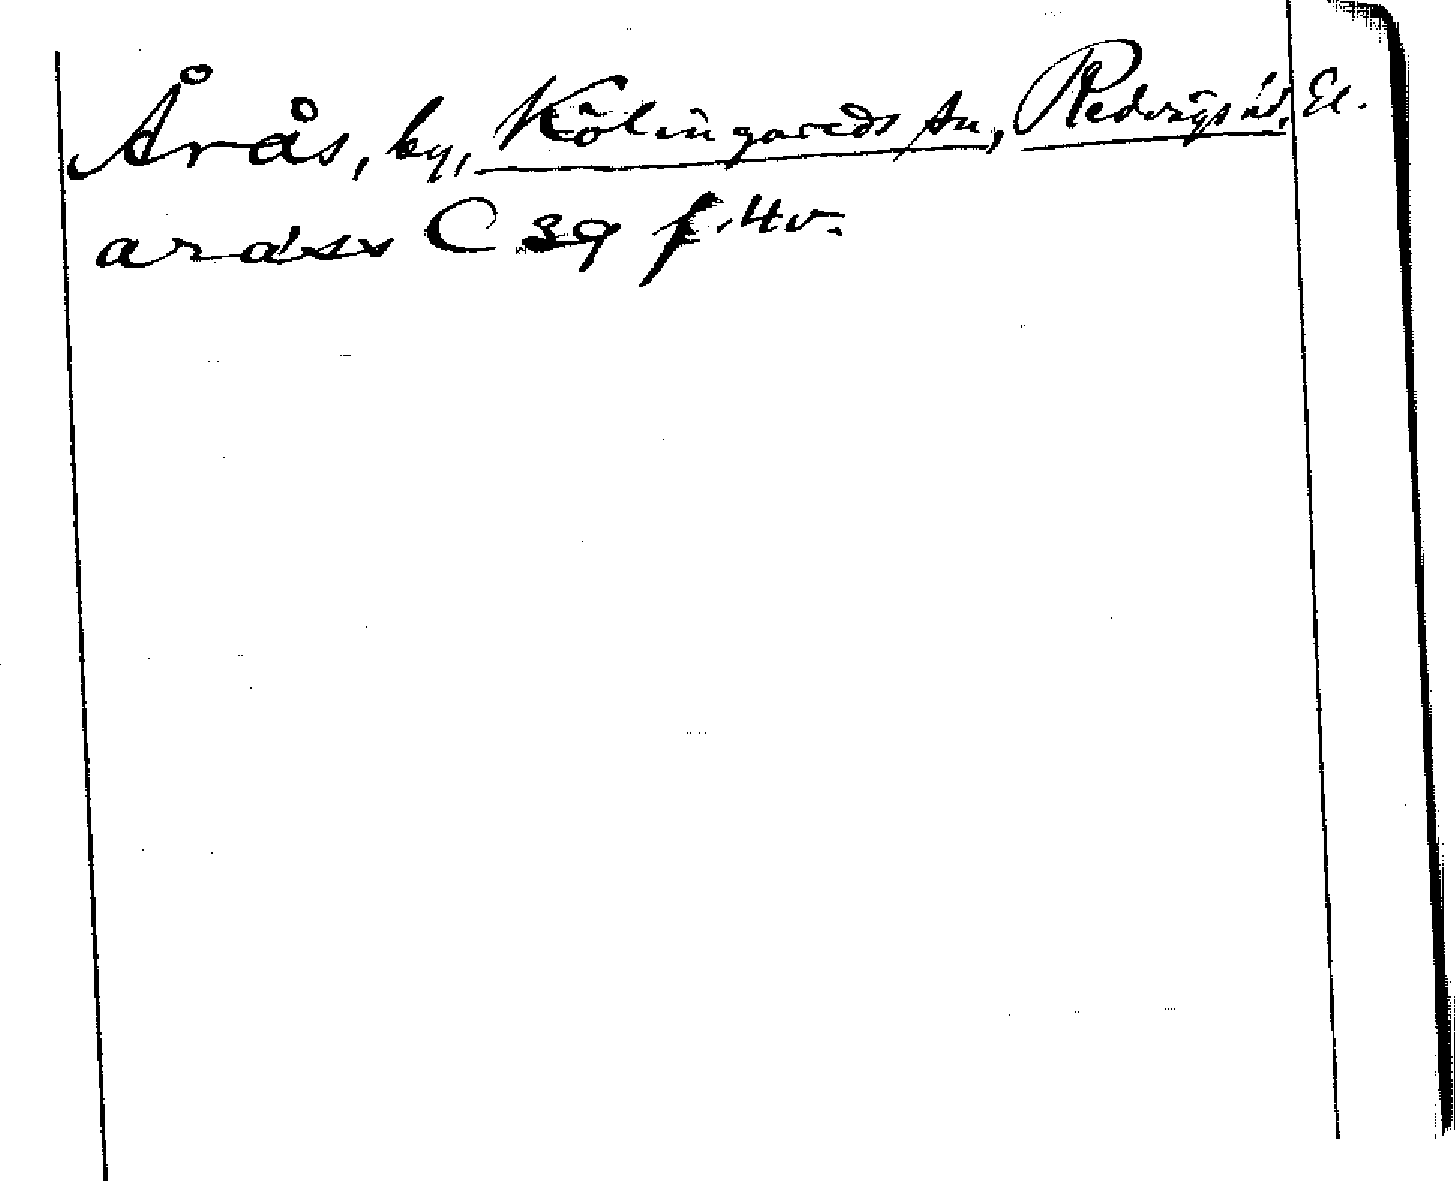 Årås, by, Kölingareds sn, Redvägs hd, El.
arass C 39 f. 4v.